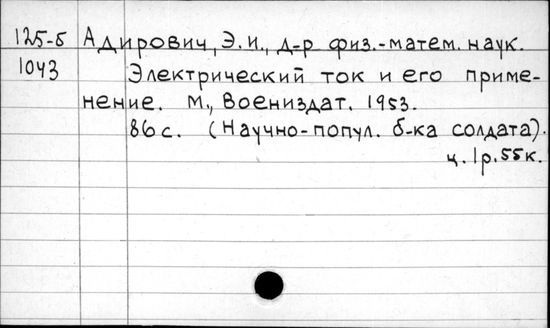 125-5 Адирович, Э.И., д-р физ.-матем. наук.
1043 Электрический ток и его приме-
нение. М., Воениздат. 1953.
86с. (Научно-попул. б-ка солдата).
ц. 1р.55к.